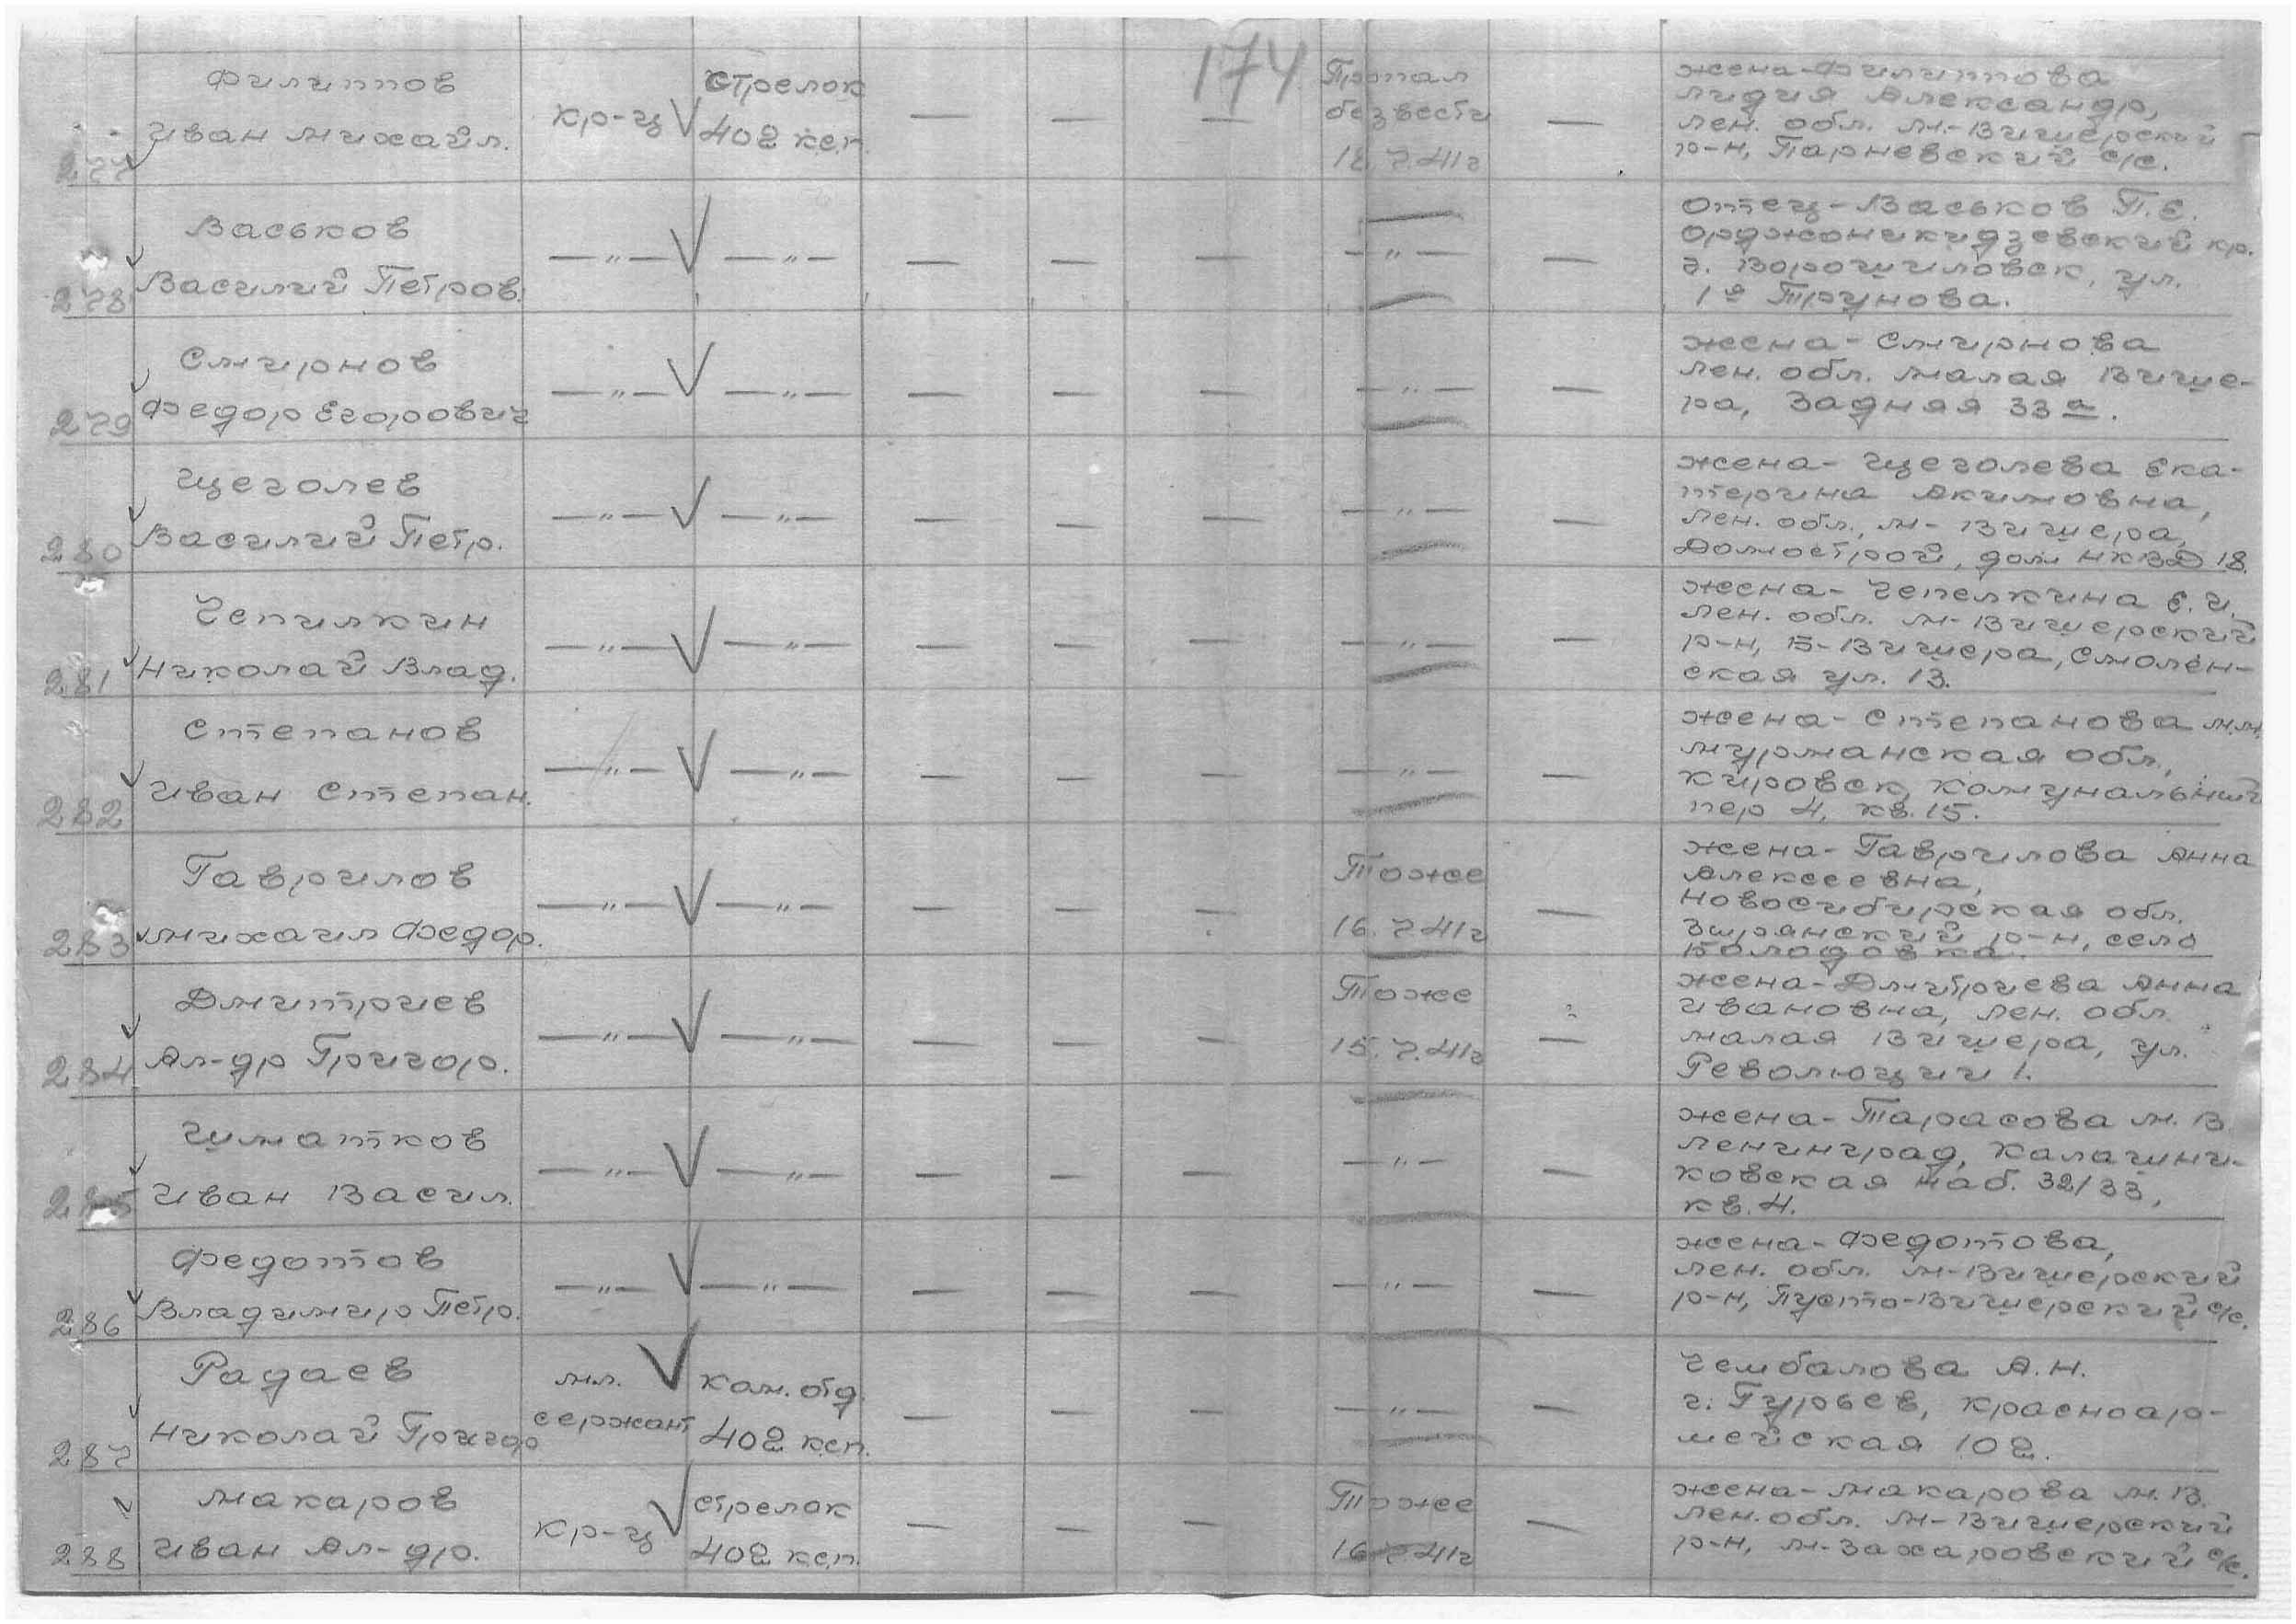 174
277
Филиппов
Иван Михайл.
кр-ц
Стрелок
402 ксп.
—
—
—
Пропал
без вести
12.7.41г
—
жена-Филиппова
Лидия Александр,
Лен. обл. М.-Вишерский
р-н, Парневский с/с.
278
Васьков
Василий Петров.
—„—
—„—
—
—
—
—„—
—
отец-Васьков П.Е.
Орджоникидзевский кр.
г. Ворошиловск, ул.
1я Трунова.
279
Смирнов
Федор Егорович
—„—
—„—
—
—
—
—„—
—
жена-Смирнова
Лен. обл. Малая Више-
ра, Задняя 33а.
280
Щеголев
Василий Петр.
—„—
—„—
—
—
—
—„—
—
жена-Щеголева Ека-
терина Акимовна,
Лен. обл., М-Вишера,
Домострой, дом НКВД 18.
281
Чепилкин
Николай Влад.
—„—
—„—
—
—
—
—„—
—
жена-Чепелкина Е.И.
Лен. обл. М-Вишерский
р-н, Б-Вишера, Смолен-
ская ул. 13.
282
Степанов
Иван Степан.
—„—
—„—
—
—
—
—„—
—
жена-Степанова М.М.
Мурманская обл.,
Кировск, Комунальный
пер 4, кв.15.
283
Гаврилов
Михаил Федор.
—„—
—„—
—
—
—
Тоже
16.7.41г
—
жена-Гаврилова Анна
Алексеевна,
Новосибирская обл.
р-н, село
284
Дмитриев
Ал-др Григор.
—„—
—„—
—
—
—
Тоже
15.7.41г
—
жена-Дмитриева Анна
Ивановна, Лен. обл.
Малая Вишера, ул.
Революции 1.
285
Шматков
Иван Васил.
—„—
—„—
—
—
—
—„—
—
жена-Тарасова М.В.
Ленинград, Калашни-
ковская наб. 32/33,
кв.4.
286
Федотов
Владимир Петр.
—„—
—„—
—
—
—
—„—
—
жена-Федотова,
Лен. обл. М-Вишерский
р-н, Пусто-Вишерский с/с.
287
Радаев
Николай Григор
мл.
сержант
ком. отд.
402 ксп.
—
—
—
—„—
—
Чембалова А.Н.
г. Гурьев, Красноар-
мейская 102.
288
Макаров
Иван Ал-др.
кр-ц
стрелок
402 ксп.
—
—
—
Тоже
16.7.41г
—
жена-Макарова М.В.
Лен.обл. М-Вишерский
р-н, М-Захаровский с/с.